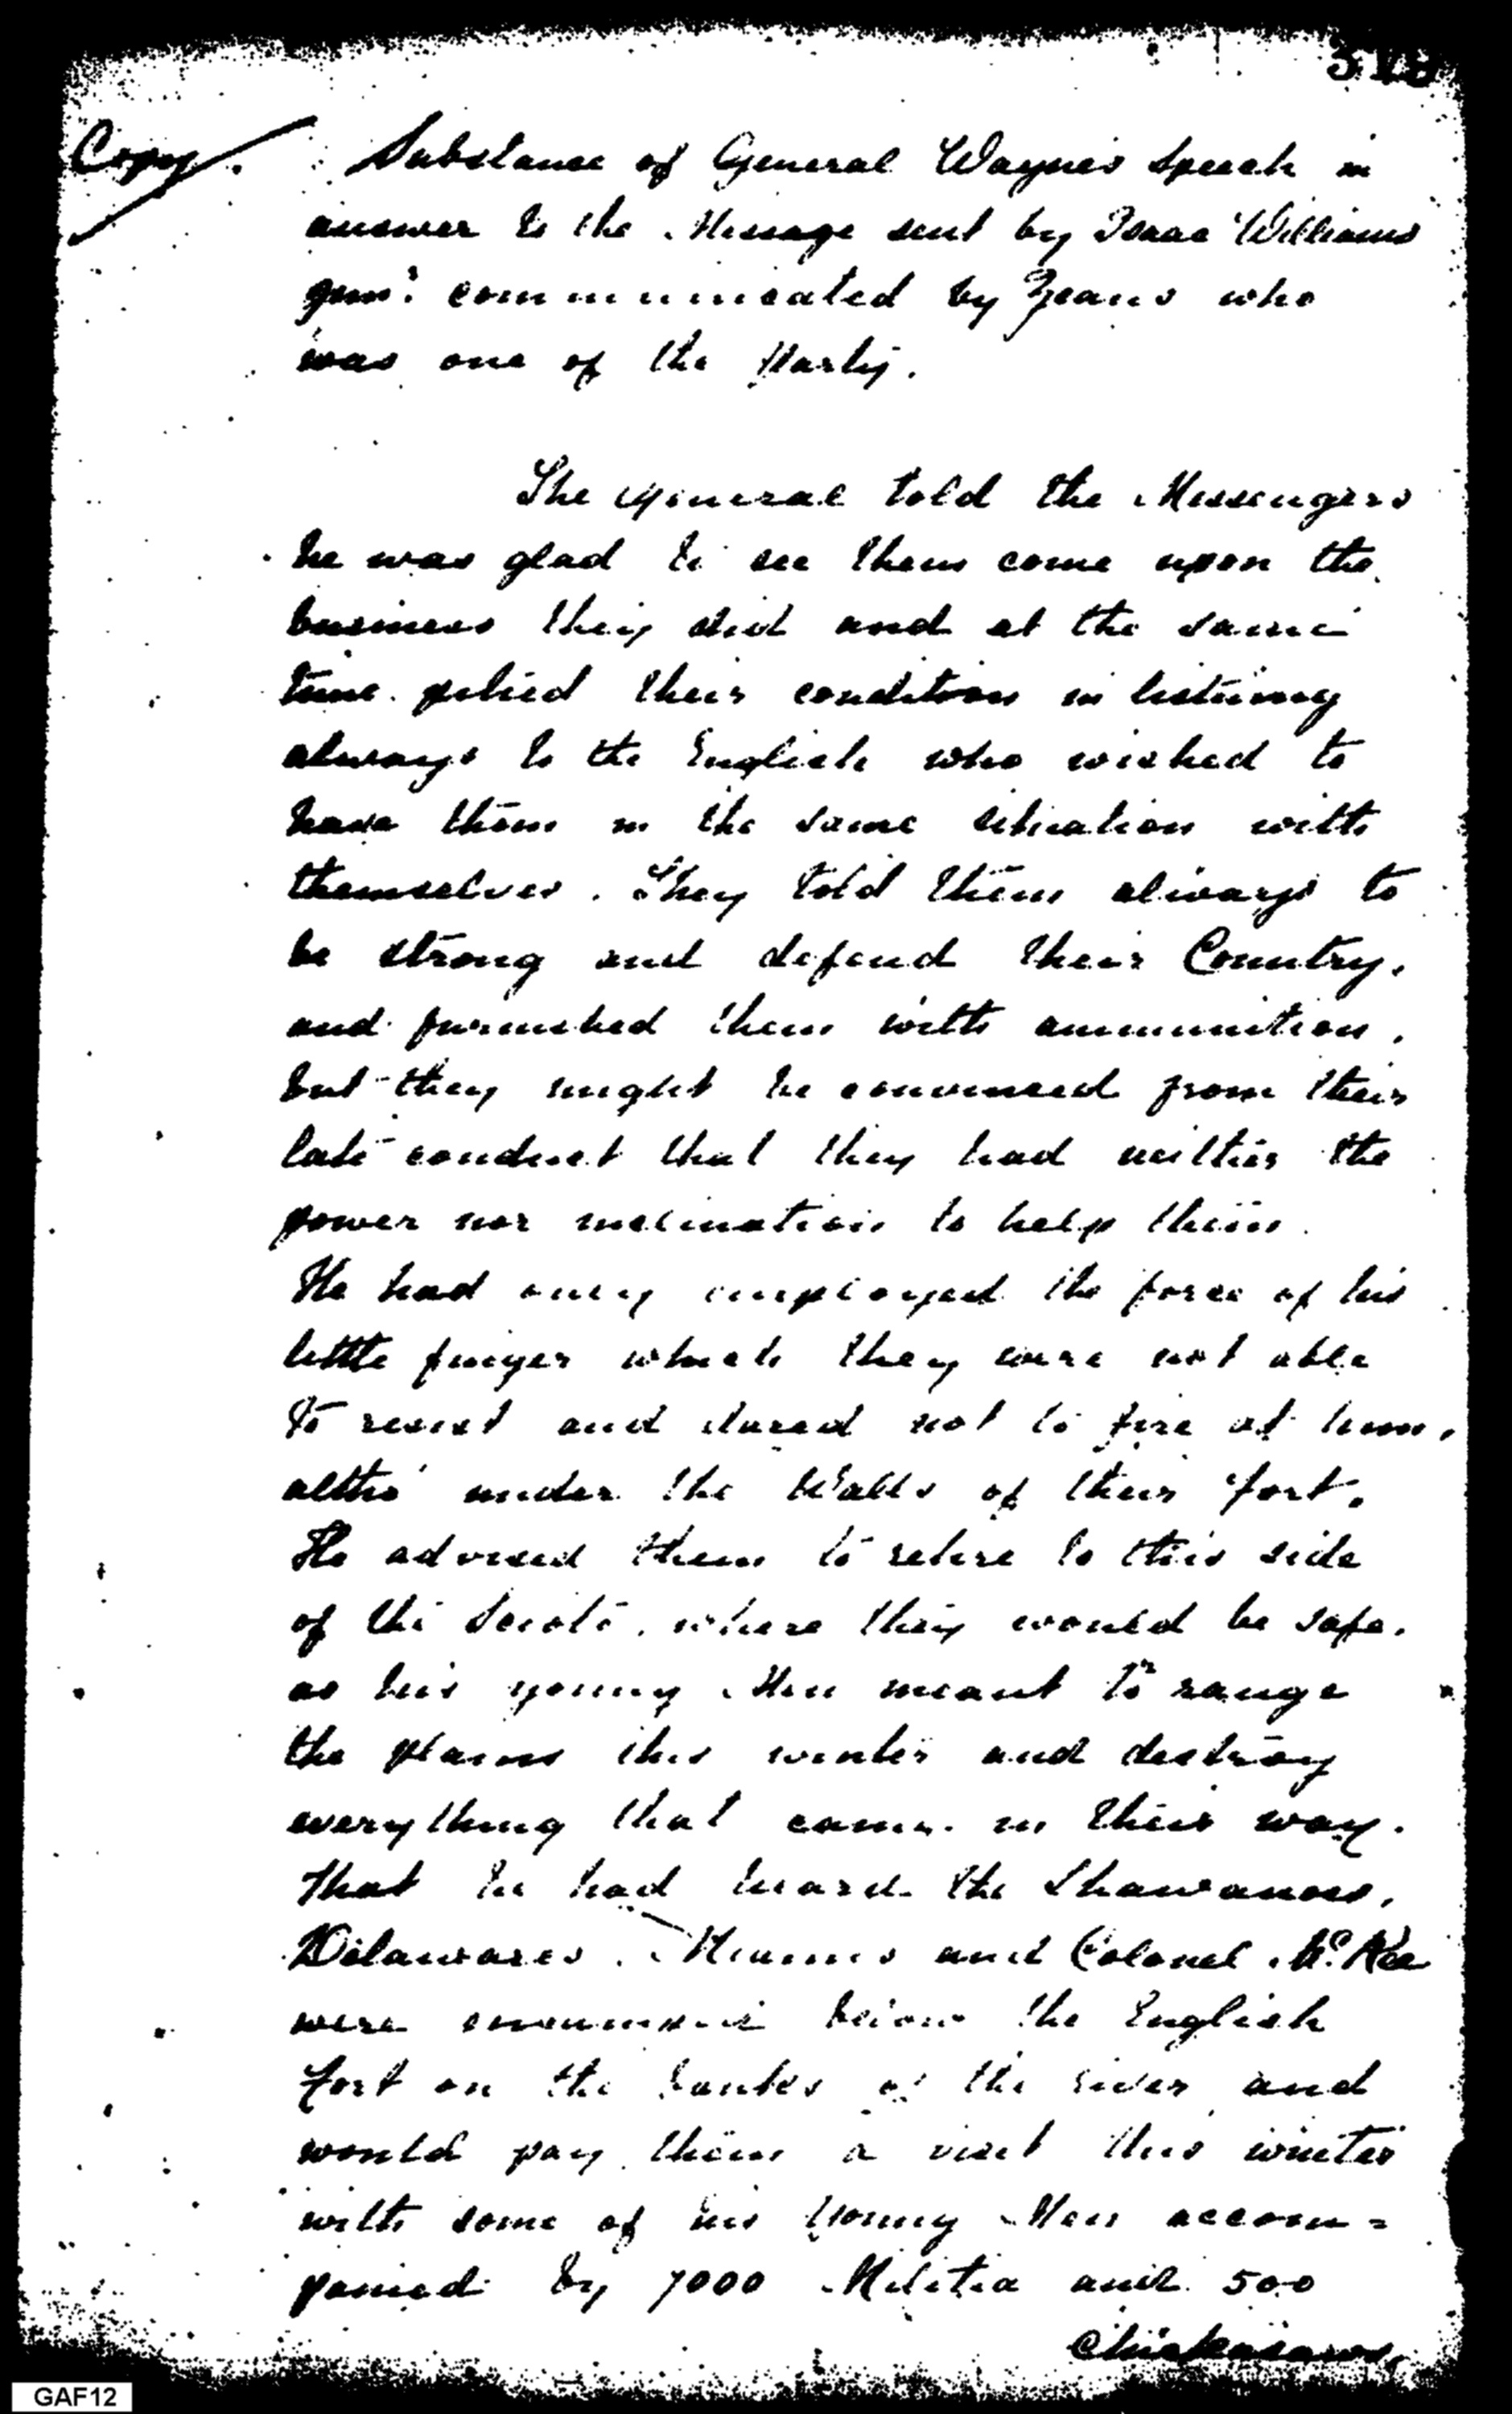 Copy.
Substance of General Wayne's Speech in
answer to the Message sent by Isaac Williams
junr. communicated by Zeans who
was one of the Party.
The General told the Messengers
he was glad to see them come upon the
business they did and at the same
time pitied their condition in listening
always to the English who wished to
have them in the same situation with
themselves. They told them always to
be strong and defend their Country,
and furnished them with ammunition,
but they might be convinced from their
late conduct that they had neither the
power nor inclination to help them.
He had only employed the force of his
little finger which they were not able
to resist and dared not to fire at him,
altho' under the Walls of their fort.
He advised them to retire to this side
of the Scioto, where they would be safe,
as his young Men meant to range
the plains this winter and destroy
everything that came in their way.
That he had heard the Shawanoes,
Delawares, Miamis and Colonel McKee
were encamped below the English
fort on the banks of the river and
would pay them a visit this winter
with some of his Young Men accom=
panied by 7000 Militia and 500
Chickasaws,
GAF12